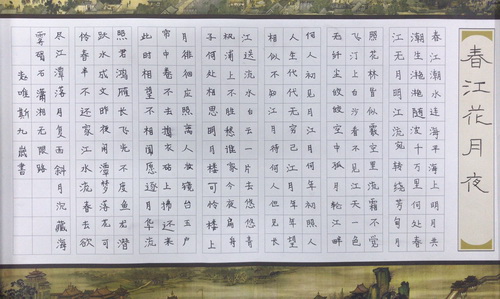 春江花月夜
春江潮水连海平海上明月共
潮生滟滟随波千万里何处春
江无月明江流宛转绕芳甸月
照花林皆似霰空里流霜不觉
飞汀上白沙看不见江天一色
无纤尘皎皎空中孤月轮江畔
何人初见月江月何年初照人
人生代代无穷已江月年年望
相似不知江月待何人但见长
江送流水白云一片去悠悠青
枫浦上不胜愁谁家今夜扁舟
子何处相思明月楼可怜楼上
月徘徊应照离人妆镜台玉户
帘中卷不去捣衣砧上拂还来
此时相望不相闻愿逐月华流
照君鸿雁长飞光不度鱼龙潜
跃水成文昨夜闲潭梦落花可
怜春半不还家江水流春去欲
尽江潭落月复西斜月沉藏海
雾碣石潇湘无限路
赵唯斯九岁书